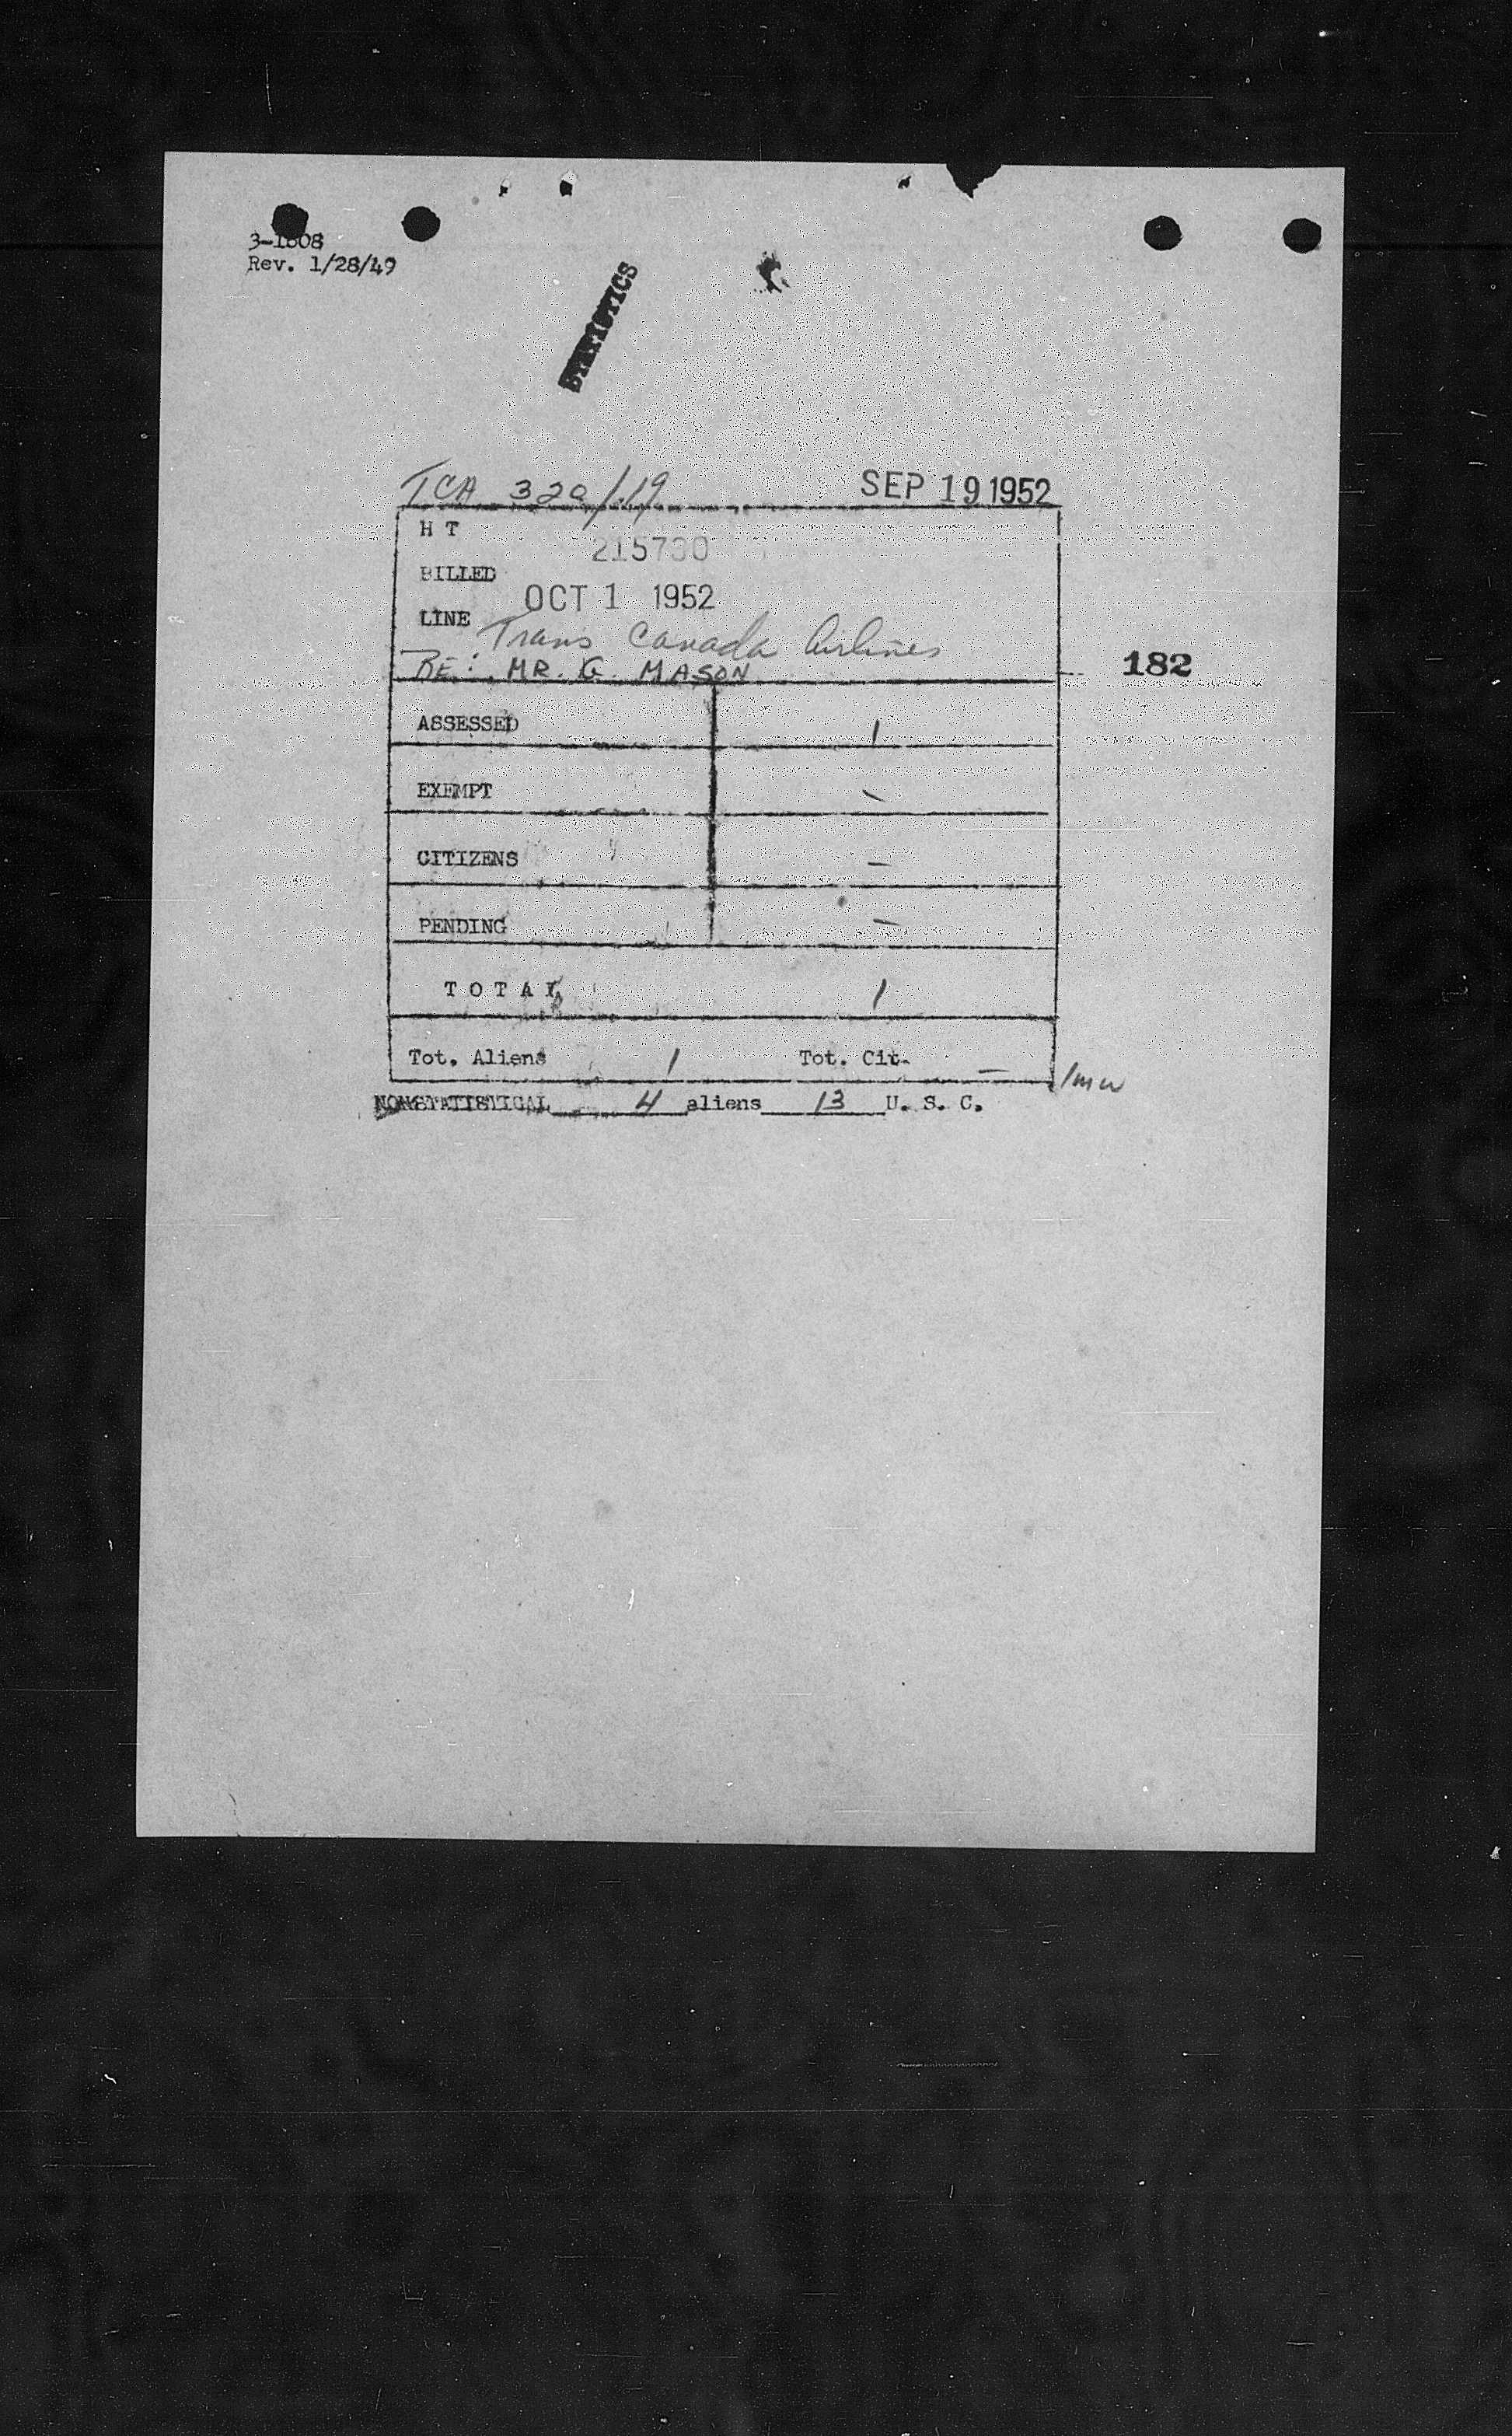 3-1608
Rev. 1/28/49
STATISTICS
TCA 320/19 SEP 19 1952
H T
215730
BILLED
OCT 1 1952
LINE Trans Canada Airlines
RE: MR. G. MASON 182
ASSESSED 1
EXEMPT -
CITIZENS -
PENDING -
T O T A L 1
Tot. Aliens 1 Tot. Cit. -
/mw
NONSTATISTICAL 4 aliens 13 U. S. C.